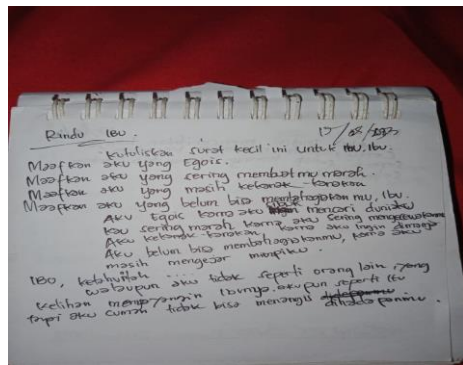 Rindu IBU.
Kutuliskan surat kecil ini untuk Ibu.
Maafkan aku yang Egois.
Maafkan aku yang sering membuatmu marah.
Maafkan aku yang masih kekanak-kanakan
Maafkan aku yang belum bisa membahagiakan mu, Ibu.
Aku Egois karna aku sibuk mencari duniaku
kau sering marah karna aku sering mengecewakanmu
Aku kekanak-kanakan, karna aku ingin dimanja
Aku belum bisa membahagiakanmu, karna aku
masih mengejar mimpiku.
IBO, ketahuilah .... aku tidak seperti orang lain, yang
walaupun
kelihan Ibunya. akupun seperti itu
tapi aku cuman tidak bisa menangis dihadapanmu.